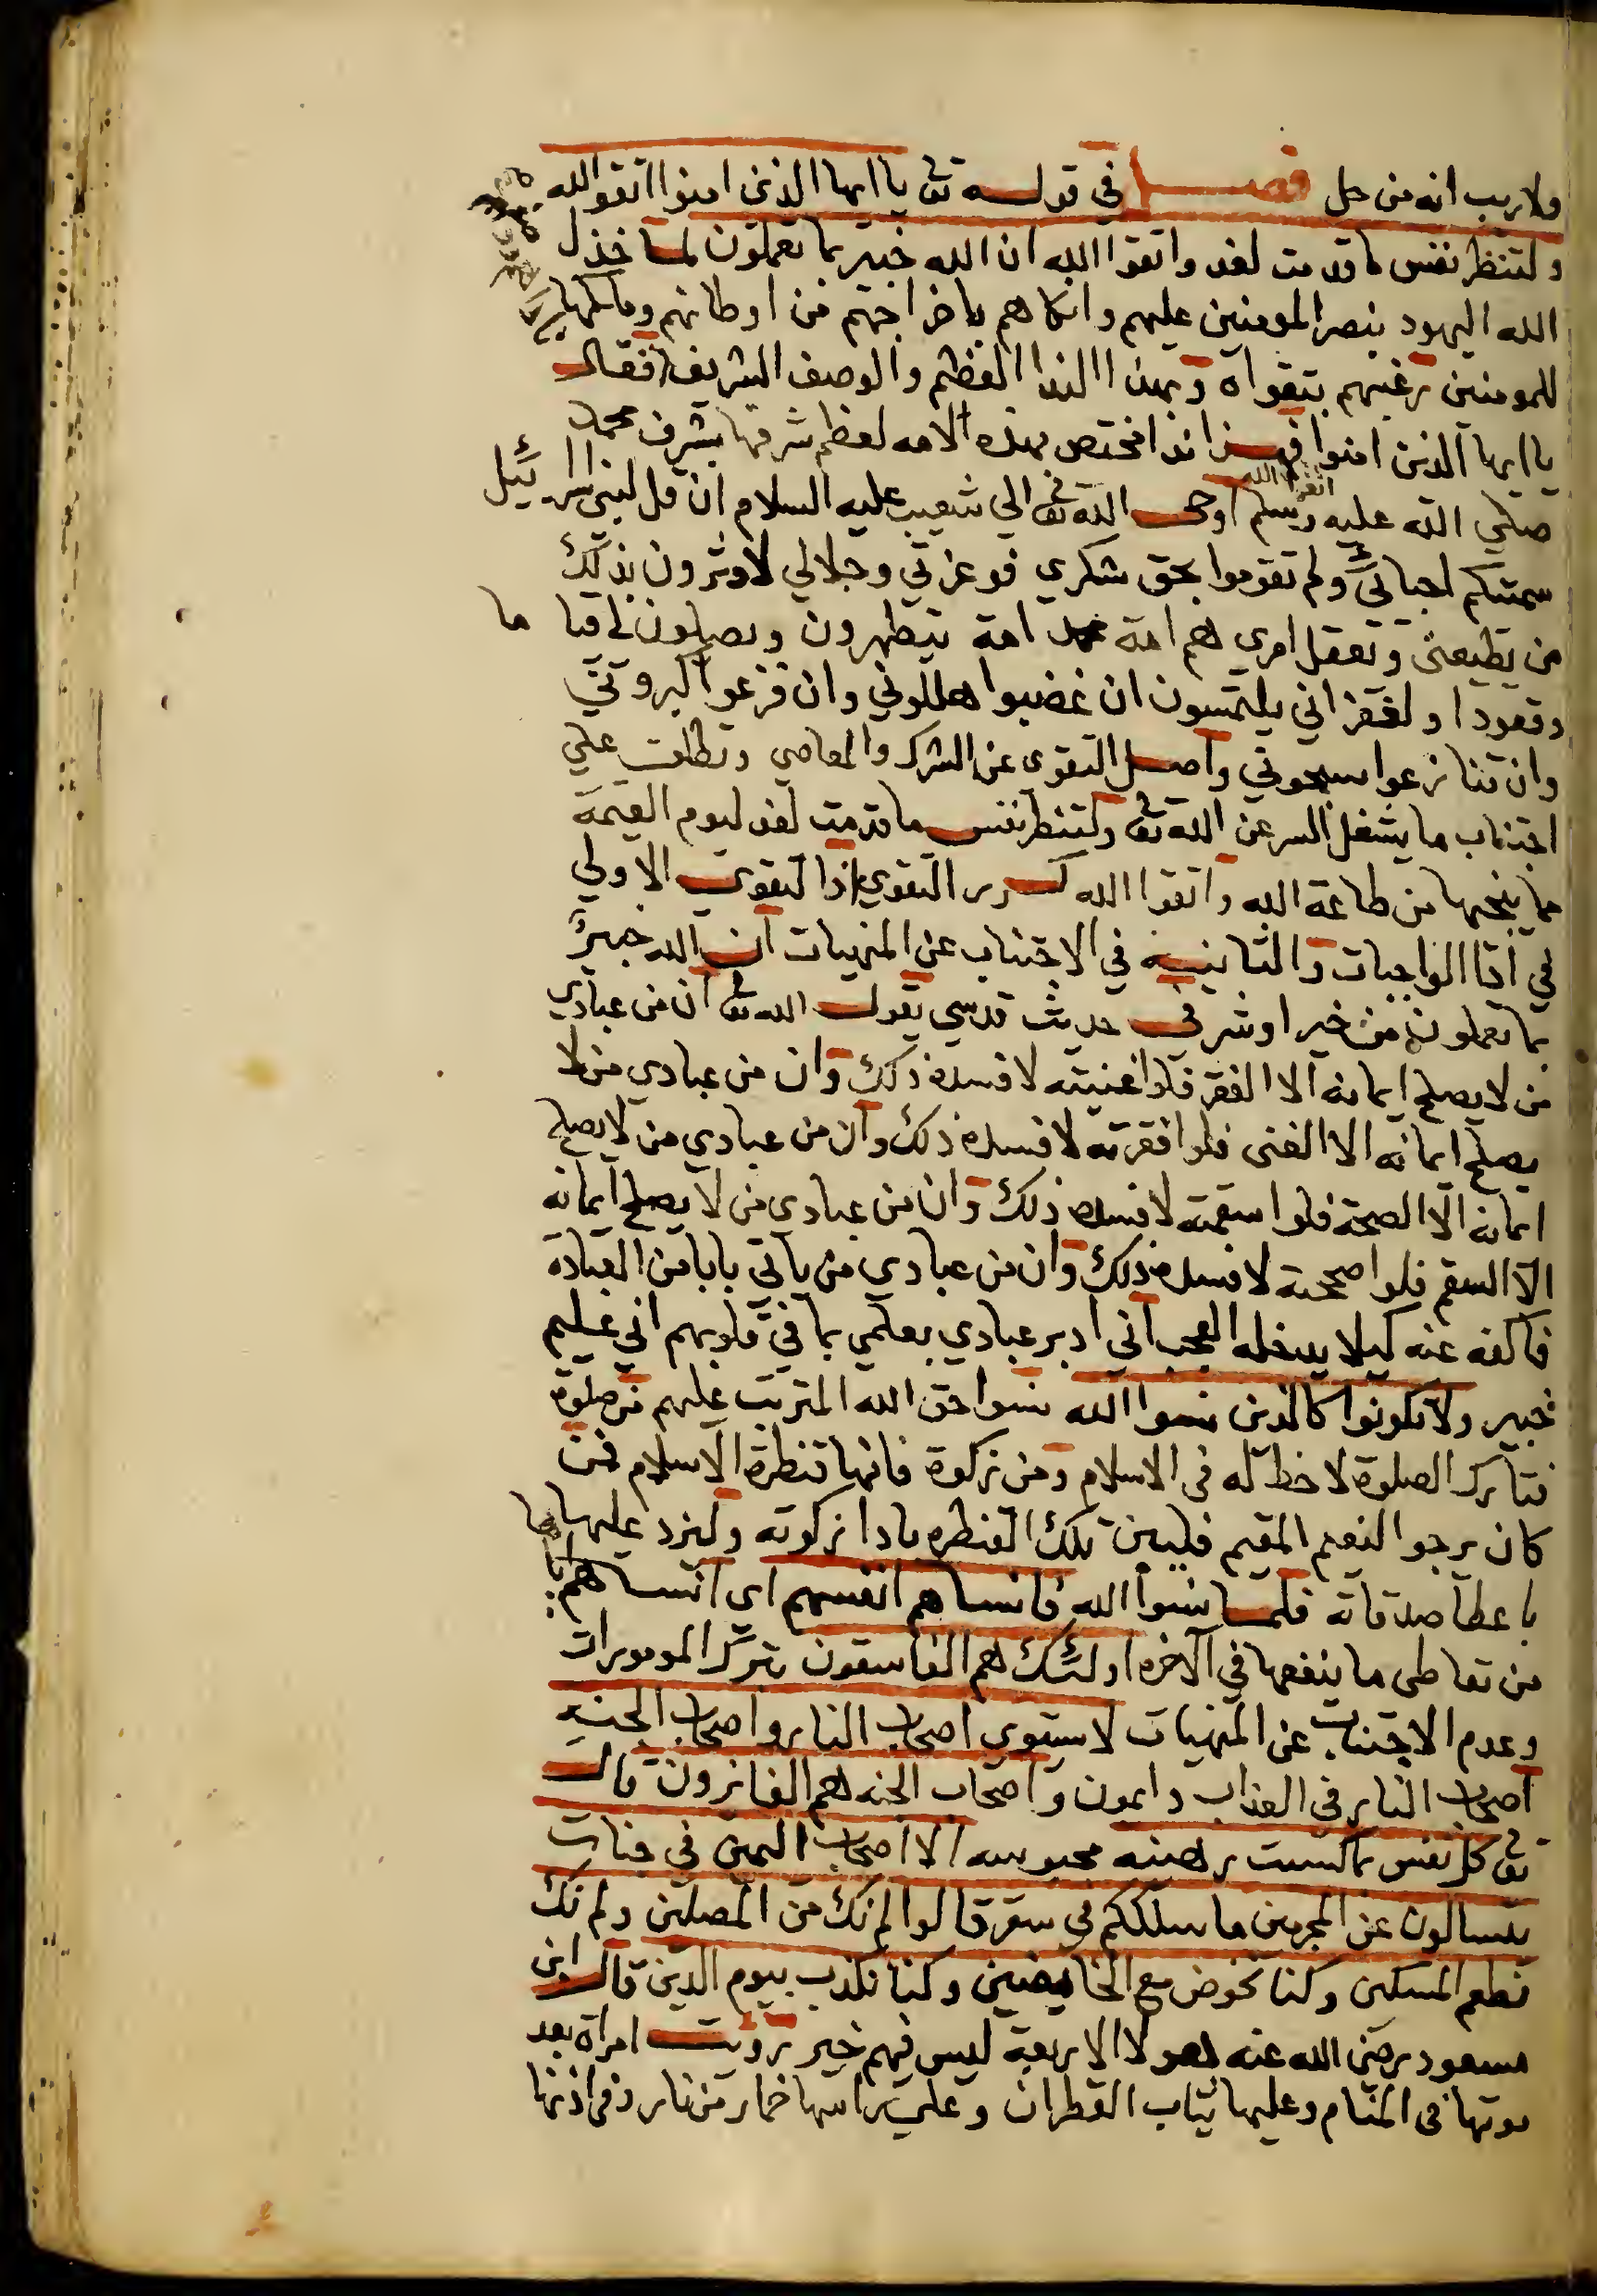 ولا ريب انه من حل فصل في قوله تعا يا ايها الذين امنوا اتقوا الله
ولتنظر نفس ما قدمت لغد واتقوا الله ان الله خبير بما تعملون لما خذل
الله اليهود بنصر المومنين عليهم وانكاهم باخراجهم من اوطانهم وملكها
للمومنين رغبهم بتقواه وبهذا الندا العظيم والوصف الشريف فقال
يا ايها الذين امنوا اتقوا الله فهذا ندا مختص بهذه الامه لعظم شرفها بشرف محمد
صلي الله عليه وسلم اوحي الله تعا الي شعيب عليه السلام ان قل لبني اسرائيل
سميتكم احبائي ولم تقوموا بحق شكري فوعزتي وجلالي لاوثرون بذلك
من يطيعني ويعقل امري هم امة محمد امة يتطهرون ويصلون لي قياما
وقعودا ولغفراني يلتمسون ان غضبوا هللوني وان فزعوا كبروني
وان تنازعوا سبحوني واصل التقوى عن الشرك والمعاصي وتطلق علي
اجتناب ما يشغل السر عن الله تعا ولتنظر نفس ما قدمت لغد ليوم القيمة
مما ينجيها من طاعة الله واتقوا الله كرر التقوي اذ التقوى الاولي
في ادا الواجبات والثانيه في الاجتناب عن المنهيات ان الله خبير
بما تعملون من خير او شر في حديث قدسي يقول الله تعا ان من عبادي
من لا يصلح ايمانه الا الفقر فلو اغنيته لافسده ذلك وان من عبادي من لا
يصلح ايمانه الا الغنى فلو افقرته لافسده ذلك وان من عبادي من لا يصلح
ايمانه الا الصحة فلو اسقمته لافسده ذلك وان من عبادي من لا يصلح ايمانه
الا السقم فلو اصححته لافسده ذلك وان من عبادي من ياتي بابا من العبادة
فاكفه عنه كيلا يدخله العجب اني ادبر عبادي بعلمي بما في قلوبهم اني عليم
خبير ولا تكونوا كالذين نسوا الله نسوا حق الله المترتب عليهم من صلوة
فتارك الصلوة لا حظ له في الاسلام ومن زكوة فانها قنطرة الاسلام فمن
كان يرجوا النعيم المقيم فليبن تلك القنطره بادا زكوته وليزد عليها
باعطا صدقاته فلما نسوا الله فانساهم انفسهم اي انساهم
من تعاطى ما ينفعها في الآخره اولئك هم الفاسقون بترك المومورات
وعدم الاجتناب عن المنهيات لا يستوي اصحاب النار واصحاب الجنه
اصحاب النار في العذاب دايمون واصحاب الجنه هم الفائزون قال
تعا كل نفس بما كسبت رهينه محبوسه الا اصحاب اليمين في جنات
يتسالون عن المجرمين ما سلككم في سقر قالوا لم نك من المصلين ولم نك
نطعم المسكين وكنا نخوض مع الخايضين وكنا نكذب بيوم الدين قال ابن
مسعود رضى الله عنه هولا الاربعة ليس فيهم خير رؤيت امراة بعد
موتها في المنام وعليها ثياب القطران وعلي راسها خمار من نار وفي اذنها